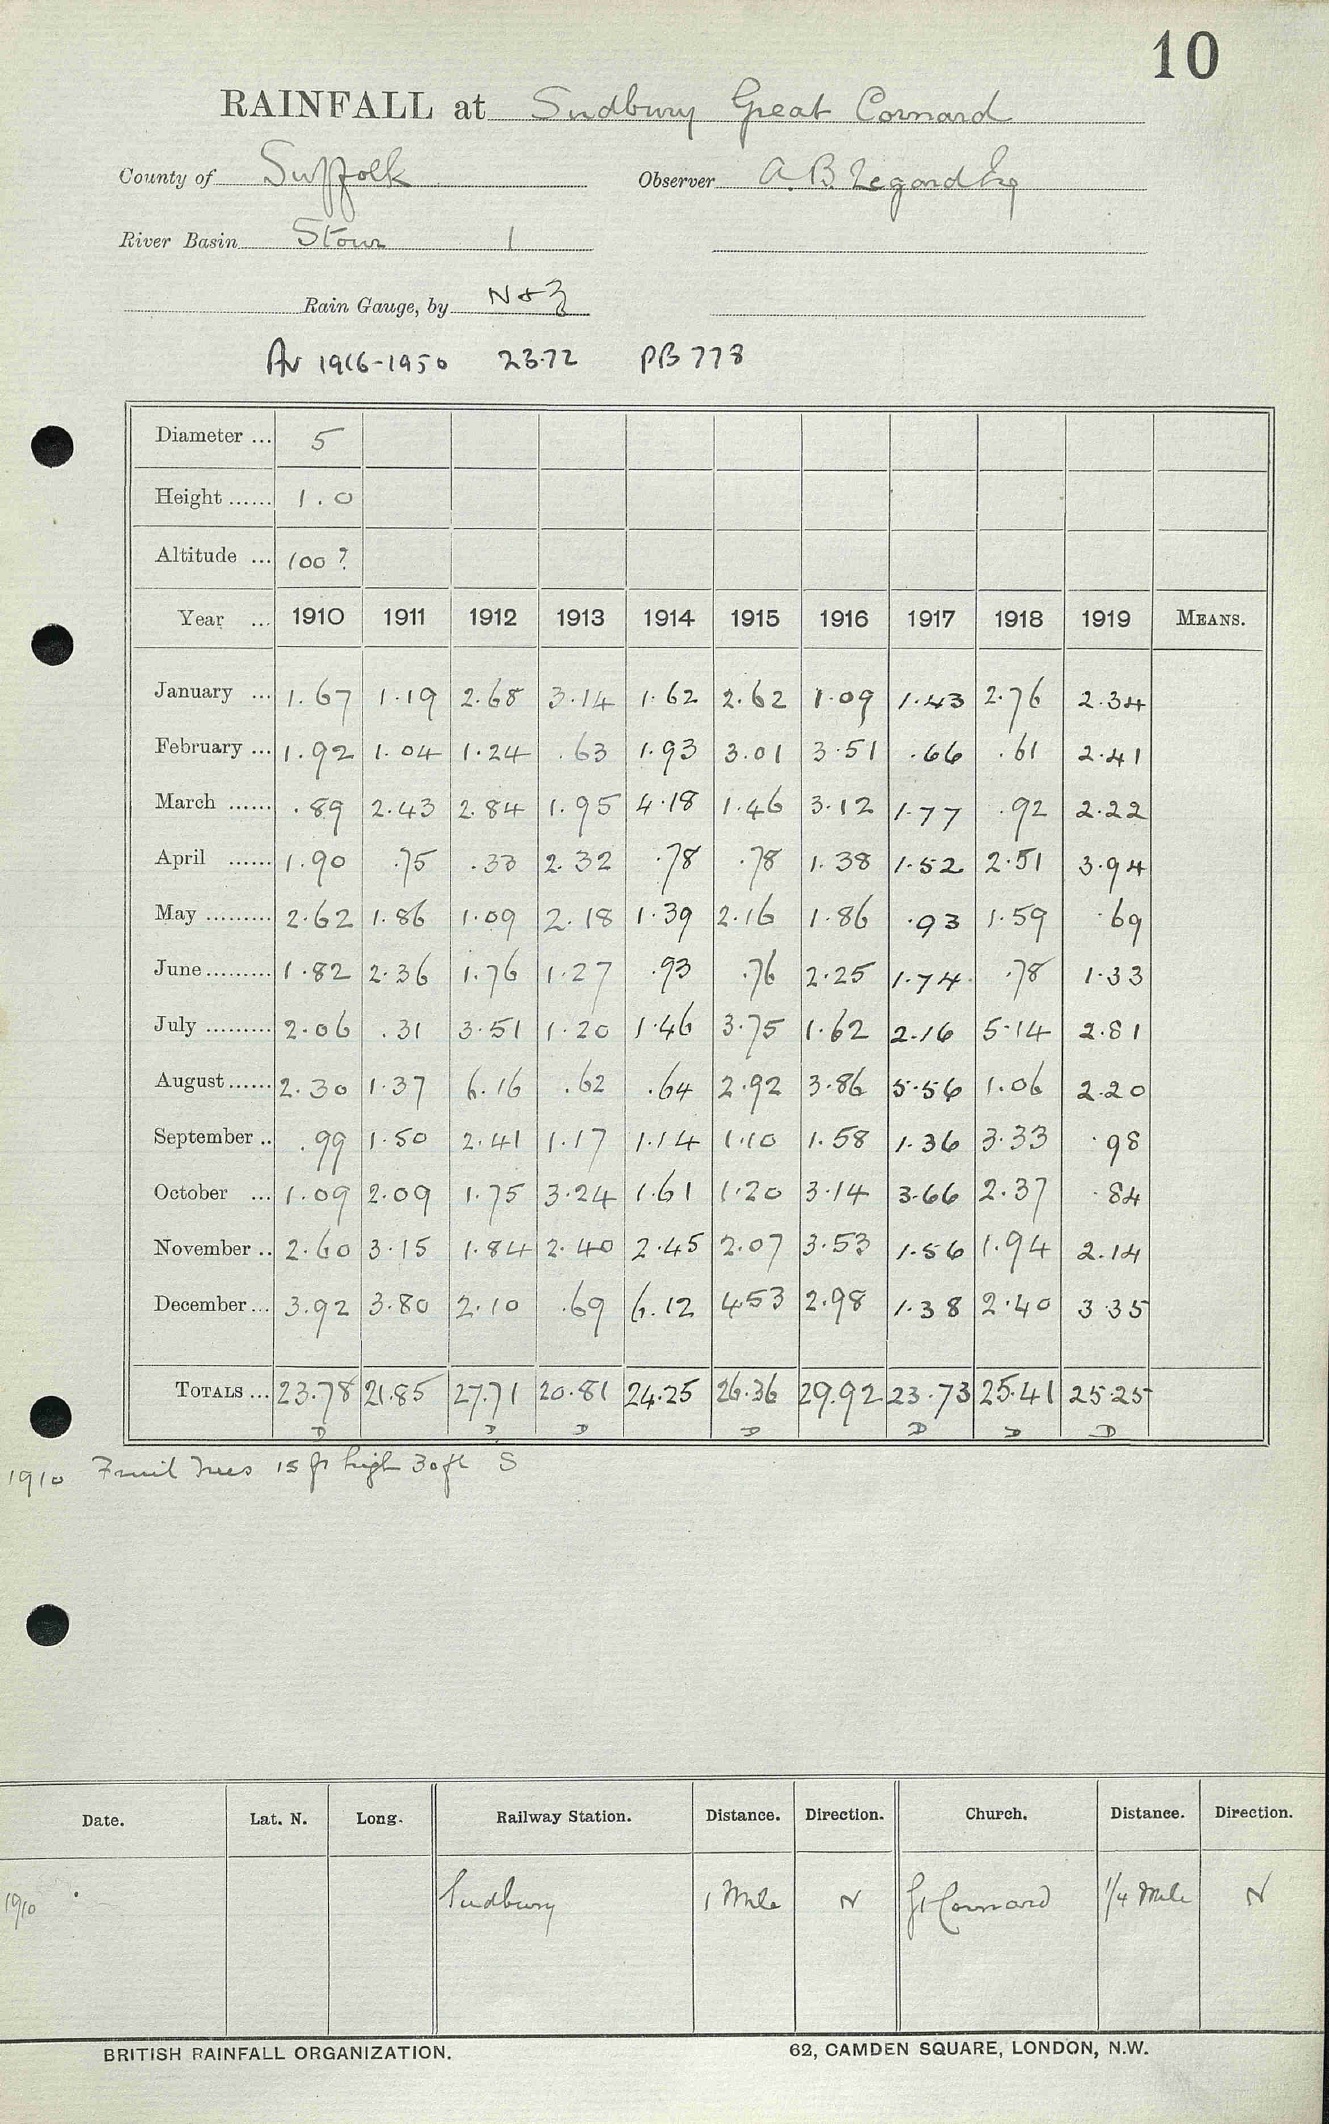 10
RAINFALL at Sudbury Great Cornard
County of Suffolk Observer A. B. Legard Esq
River Basin Stour 1
Rain Gauge, by N & Z
Av 1916-1950 23.72 PB 778
Diameter ... 5
Height ...... 1.0
Altitude ... 100 ?
Year ... 1910 1911 1912 1913 1914 1915 1916 1917 1918 1919 MEANS.
January ... 1.67 1.19 2.68 3.14 1.62 2.62 1.09 1.43 2.76 2.34
February ... 1.92 1.04 1.24 .63 1.93 3.01 3.51 .66 .61 2.41
March ...... .89 2.43 2.84 1.95 4.18 1.46 3.12 1.77 .92 2.22
April ...... 1.90 .75 .33 2.32 .78 .78 1.38 1.52 2.51 3.94
May ......... 2.62 1.86 1.09 2.18 1.39 2.16 1.86 .93 1.59 .69
June ......... 1.82 2.36 1.76 1.27 .93 .76 2.25 1.74 .78 1.33
July ......... 2.06 .31 3.51 1.20 1.46 3.75 1.62 2.16 5.14 2.81
August ...... 2.30 1.37 6.16 .62 .64 2.92 3.86 5.56 1.06 2.20
September .. .99 1.50 2.41 1.17 1.14 1.10 1.58 1.36 3.33 .98
October ... 1.09 2.09 1.75 3.24 1.61 1.20 3.14 3.66 2.37 .84
November .. 2.60 3.15 1.84 2.40 2.45 2.07 3.53 1.56 1.94 2.14
December ... 3.92 3.80 2.10 .69 6.12 4.53 2.98 1.38 2.40 3.35
TOTALS ... 23.78 21.85 27.71 20.81 24.25 26.36 29.92 23.73 25.41 25.25
D D D D D D D
1910 Fruit Trees 15 ft high 30 ft S
Date. Lat. N. Long. Railway Station. Distance. Direction. Church. Distance. Direction.
1910 Sudbury 1 Mile N Gt Cornard 1/4 Mile N
BRITISH RAINFALL ORGANIZATION. 62, CAMDEN SQUARE, LONDON, N.W.